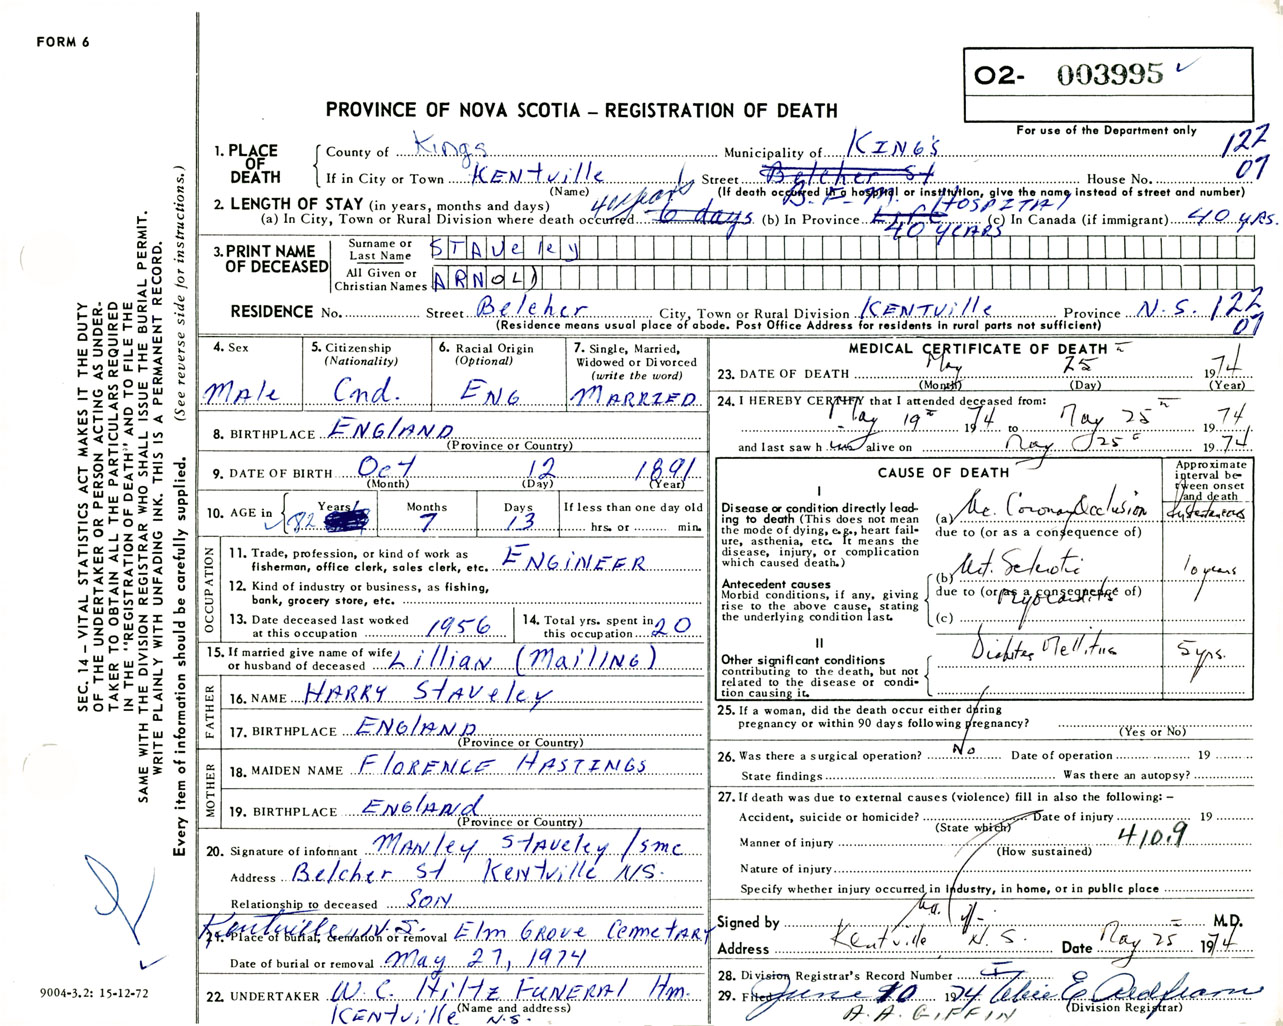 FORM 6
O2- 003995
For use of the Department only
PROVINCE OF NOVA SCOTIA – REGISTRATION OF DEATH
122
07
1. PLACE OF DEATH
County of Kings Municipality of KING'S
If in City or Town KENTville Street Belcher St House No.
(Name) (If death occurred in a hospital or institution, give the name instead of street and number)
B. F. M. HOSPITAL
2. LENGTH OF STAY (in years, months and days)
(a) In City, Town or Rural Division where death occurred 40 years 6 days (b) In Province Life 40 YEARS (c) In Canada (if immigrant) 40 yrs.
3. PRINT NAME OF DECEASED
Surname or Last Name STAVELEY
All Given or Christian Names ARNOLD
RESIDENCE No. Street Belcher City, Town or Rural Division KENTVille Province N.S. 122
07
(Residence means usual place of abode. Post Office Address for residents in rural parts not sufficient)
4. Sex
Male
5. Citizenship
(Nationality)
Cnd.
6. Racial Origin
(Optional)
ENG
7. Single, Married,
Widowed or Divorced
(write the word)
MARRIED
8. BIRTHPLACE ENGLAND
(Province or Country)
9. DATE OF BIRTH Oct 12 1891
(Month) (Day) (Year)
10. AGE in Years 82 Months 7 Days 13
If less than one day old
hrs. or min.
OCCUPATION
11. Trade, profession, or kind of work as
fisherman, office clerk, sales clerk, etc. ENGINEER
12. Kind of industry or business, as fishing,
bank, grocery store, etc.
13. Date deceased last worked
at this occupation 1956
14. Total yrs. spent in
this occupation 20
15. If married give name of wife
or husband of deceased Lillian (Mailing)
FATHER
16. NAME HARRY STAVELEY
17. BIRTHPLACE ENGLAND
(Province or Country)
MOTHER
18. MAIDEN NAME FLORENCE HASTINGS
19. BIRTHPLACE ENGLAND
(Province or Country)
20. Signature of informant MANLEY STAVELEY /smc
Address Belcher St Kentville N.S.
Relationship to deceased SON
Kentville N.S.
21. Place of burial, cremation or removal Elm Grove Cemetary
Date of burial or removal May 27, 1974
22. UNDERTAKER W.C. Hiltz Funeral Hm.
(Name and address)
KENTVille N.S.
MEDICAL CERTIFICATE OF DEATH
23. DATE OF DEATH May 25 1974
(Month) (Day) (Year)
24. I HEREBY CERTIFY that I attended deceased from:
May 19 1974 to May 25 1974
and last saw him alive on May 25 1974
CAUSE OF DEATH
Approximate interval between onset and death
I
Disease or condition directly leading to death (This does not mean the mode of dying, e.g., heart failure, asthenia, etc. It means the disease, injury, or complication which caused death.)
(a) Ac. Coronary Occlusion Instantaneous
due to (or as a consequence of)
Antecedent causes
Morbid conditions, if any, giving rise to the above cause, stating the underlying condition last.
(b) Art. Sclerotic 10 years
due to (or as a consequence of)
Myocarditis
(c)
II
Other significant conditions
contributing to the death, but not related to the disease or condition causing it.
Diabetes Mellitus 5 yrs.
25. If a woman, did the death occur either during
pregnancy or within 90 days following pregnancy?
(Yes or No)
26. Was there a surgical operation? No Date of operation 19
State findings Was there an autopsy?
27. If death was due to external causes (violence) fill in also the following: –
Accident, suicide or homicide? Date of injury 19
(State which)
Manner of injury 410.9
(How sustained)
Nature of injury
Specify whether injury occurred in Industry, in home, or in public place
Signed by M.D.
Address Kentville N.S. Date May 25 1974
28. Division Registrar's Record Number
29. Filed June 10 1974
(Division Registrar)
A. A. GIFFIN
SEC. 14 – VITAL STATISTICS ACT MAKES IT THE DUTY
OF THE UNDERTAKER OR PERSON ACTING AS UNDER-
TAKER TO OBTAIN ALL THE PARTICULARS REQUIRED
IN THE "REGISTRATION OF DEATH" AND TO FILE THE
SAME WITH THE DIVISION REGISTRAR WHO SHALL ISSUE THE BURIAL PERMIT.
WRITE PLAINLY WITH UNFADING INK. THIS IS A PERMANENT RECORD.
Every item of information should be carefully supplied. (See reverse side for instructions.)
9004-3.2: 15-12-72